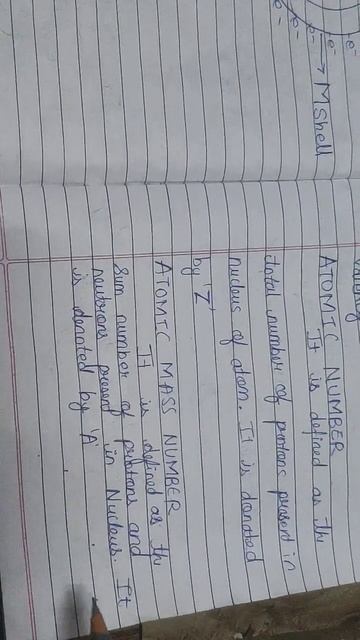 e⁻
e⁻
e⁻
e⁻
→ M Shell
ATOMIC NUMBER
It is defined as the
total number of protons present in
nucleus of atom. It is donated
by 'Z'
ATOMIC MASS NUMBER
It is defined as the
Sum number of protons and
neutrons present in Nucleus. It
is donated by 'A'